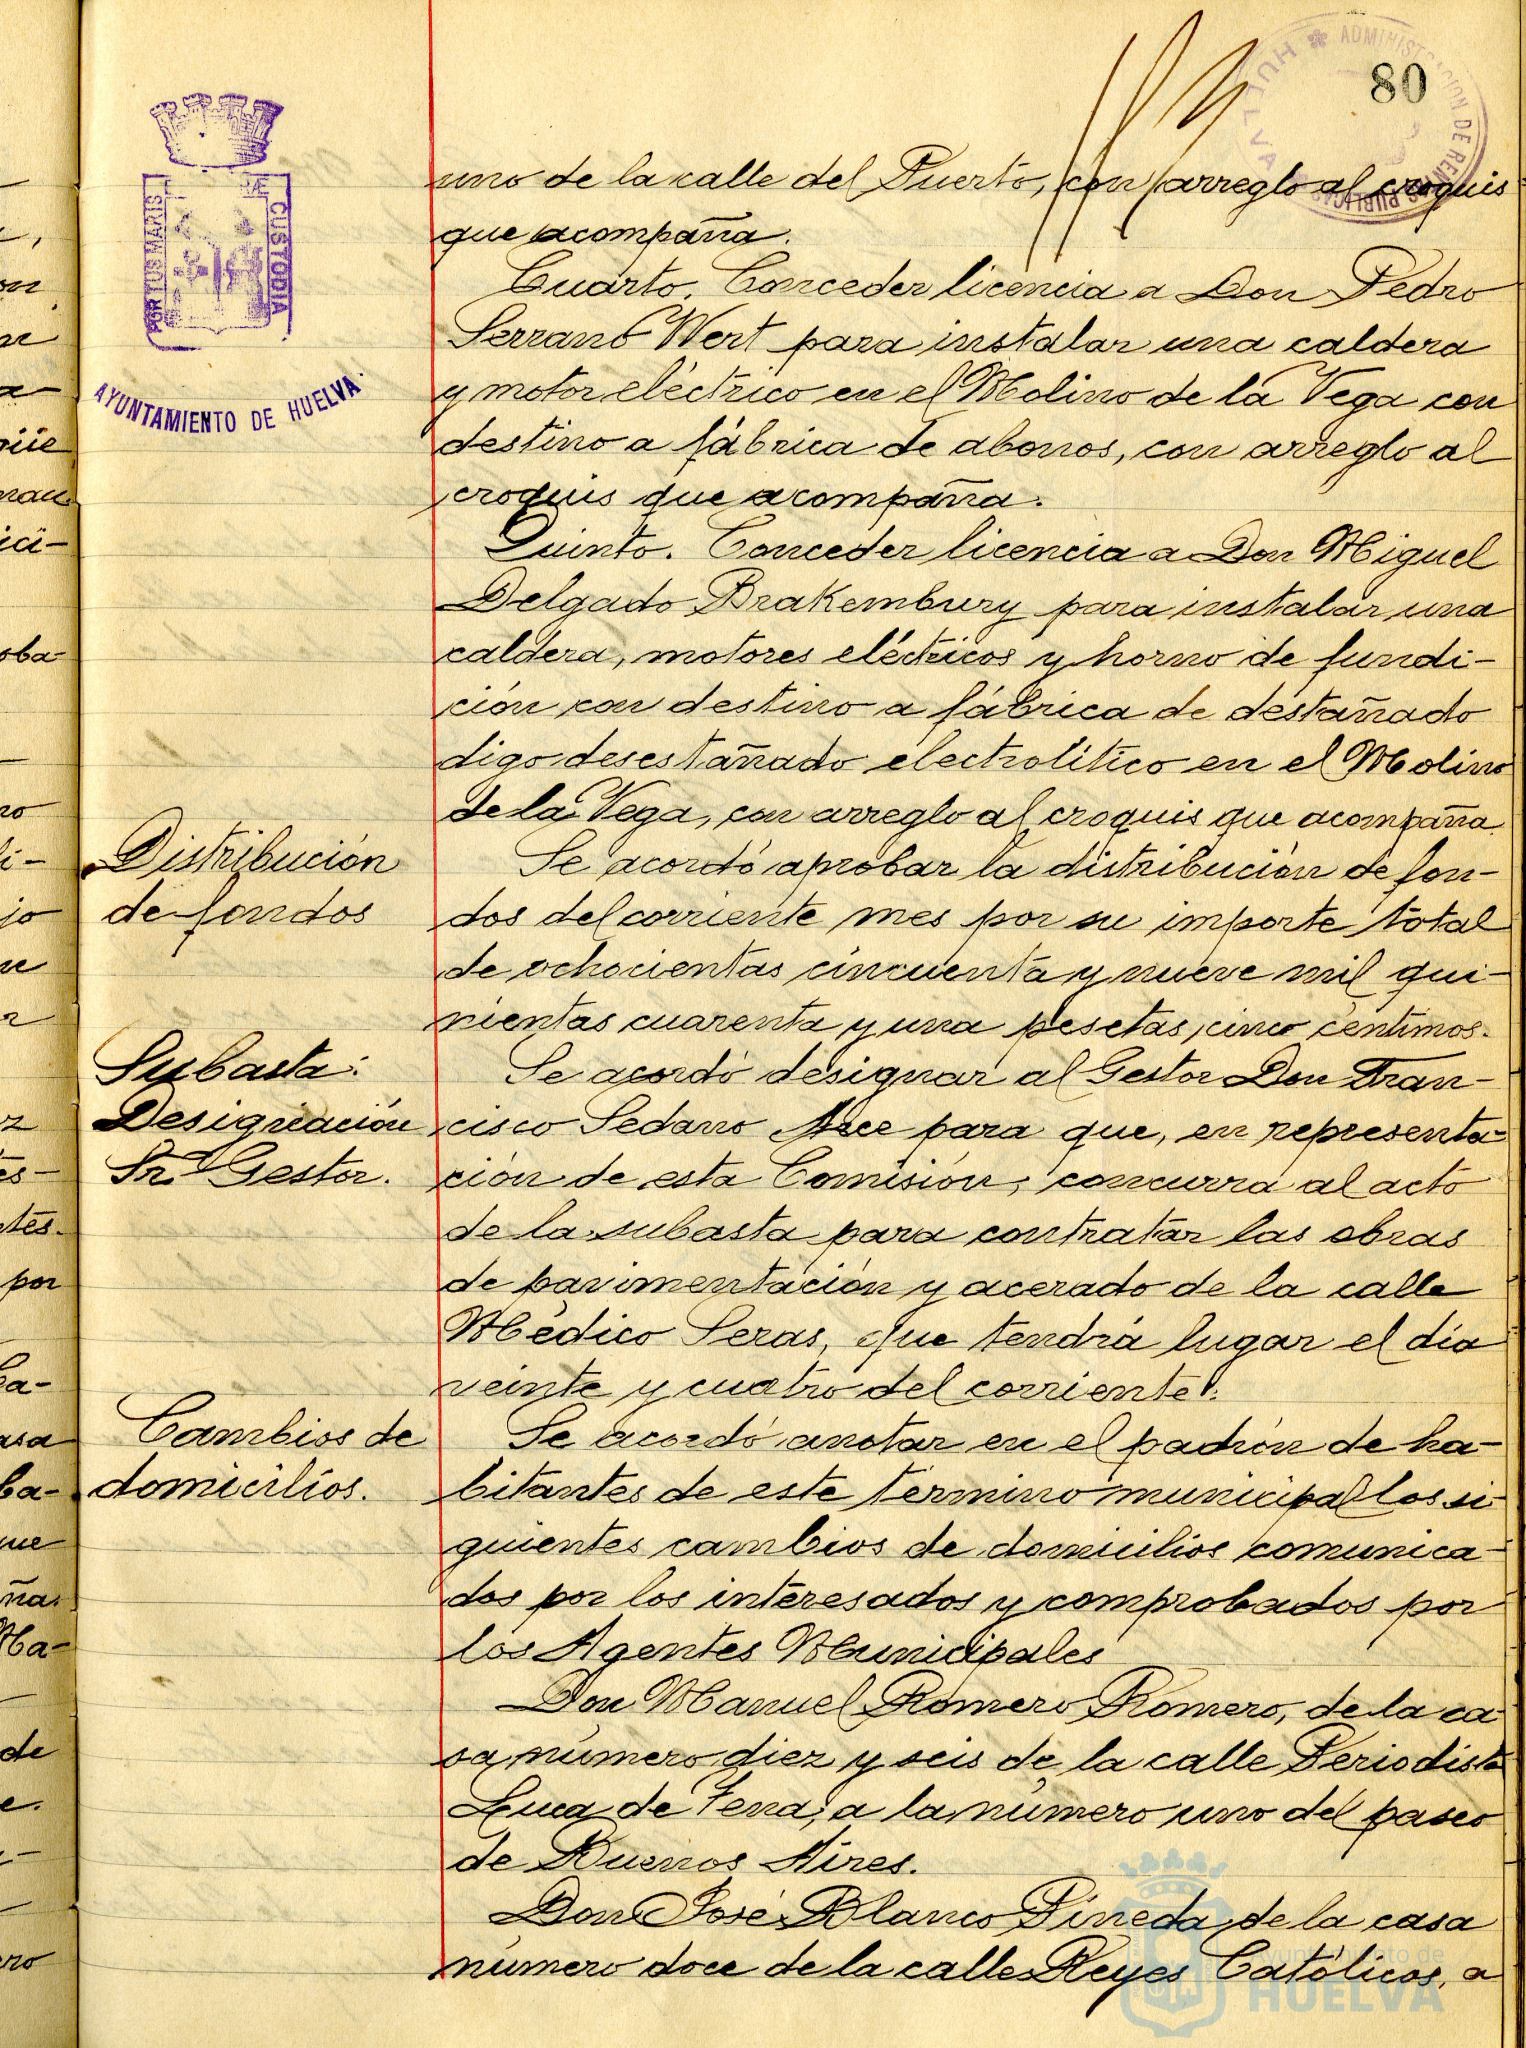 80
ADMINISTRACION DE RENTAS PUBLICAS
HUELVA
PORTUS MARIS
CUSTODIA
AYUNTAMIENTO DE HUELVA
uno de la calle del Puerto, con arreglo al croquis
que acompaña.
Cuarto. Conceder licencia a Don Pedro
Serrano Wert para instalar una caldera
y motor eléctrico en el Molino de la Vega con
destino a fábrica de abonos, con arreglo al
croquis que acompaña.
Quinto. Conceder licencia a Don Miguel
Delgado Brakembury para instalar una
caldera, motores eléctricos y horno de fundi-
ción con destino a fábrica de destañado
digo desestañado electrolítico en el Molino
de la Vega, con arreglo al croquis que acompaña
Distribución
de fondos
Se acordó aprobar la distribución de fon-
dos del corriente mes por su importe total
de ochocientas cincuenta y nueve mil qui-
nientas cuarenta y una pesetas, cinco centimos.
Subasta:
Designación
Sr. Gestor.
Se acordó designar al Gestor Don Fran-
cisco Sedano Arce para que, en representa-
ción de esta Comisión, concurra al acto
de la subasta para contratar las obras
de pavimentación y acerado de la calle
Médico Seras, que tendrá lugar el día
veinte y cuatro del corriente.
Cambios de
domicilios.
Se acordó anotar en el padrón de ha-
bitantes de este término municipal los si-
guientes cambios de domicilios comunica-
dos por los interesados y comprobados por
los Agentes Municipales
Don Manuel Romero Romero, de la ca-
sa número diez y seis de la calle Periodista
Luca de Tena, a la número uno del paseo
de Buenos Aires.
Don José Blanco Pineda, de la casa
número doce de la calle Reyes Católicos, a
Ayuntamiento de
HUELVA